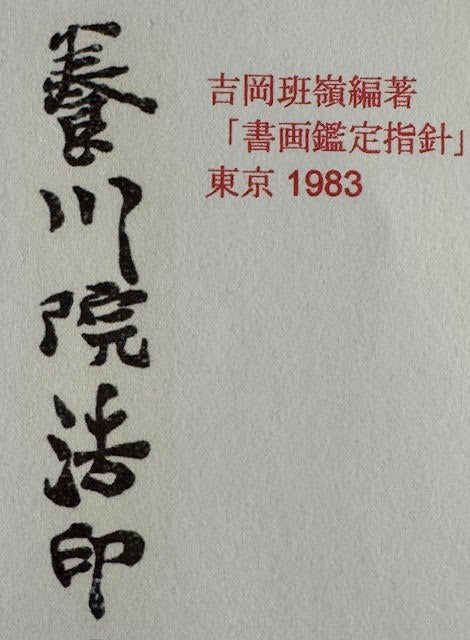 養川院法印
吉岡班嶺編著
「書画鑑定指針」
東京 1983